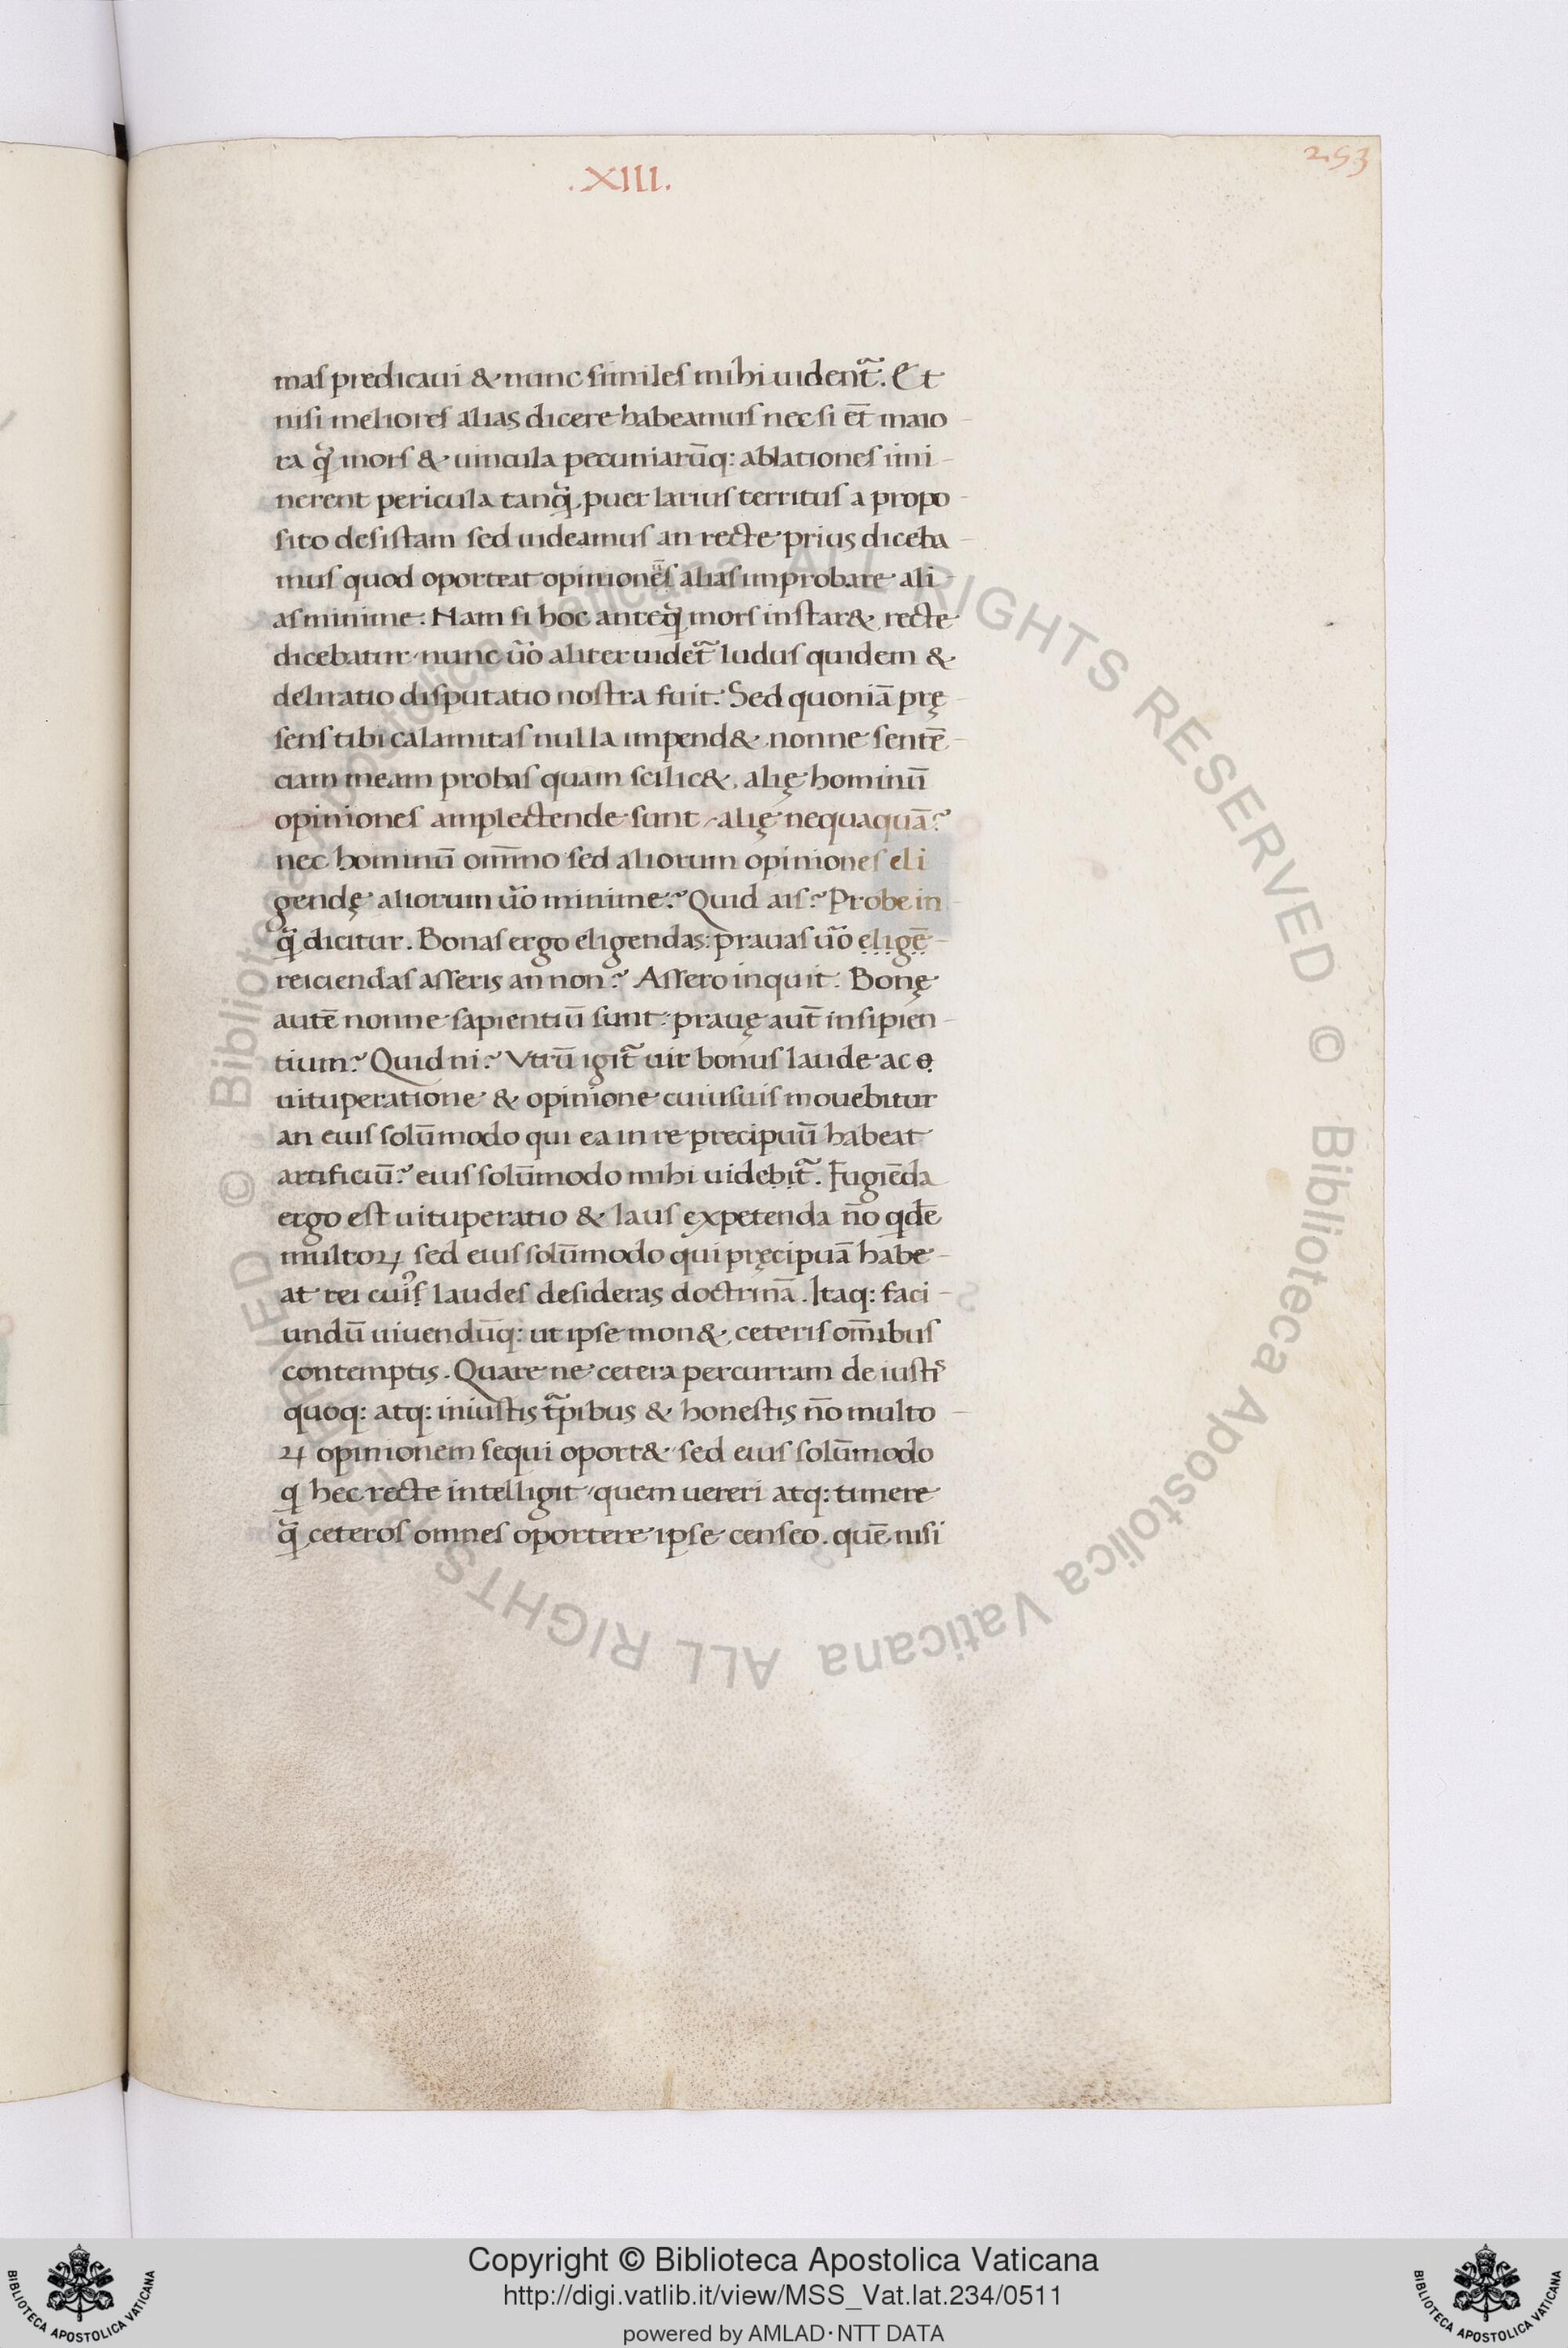 .XIII.
253
mas predicaui & nunc similes mihi uident᷑. Et
nisi meliores alias dicere habeamus nec si et̄ maio
ra q̃ mors & uincula pecuniarūq: ablationes imi
nerent pericula tanq̃ puer laruis territus a propo
sito desistam sed uideamus an recte prius diceba
mus quod oporteat opiniones alias improbare ali
as minime. Nam si hoc anteq̃ mors instar& recte
dicebatur nunc u͂o aliter uidet᷑ ludus quidem &
deliratio disputatio nostra fuit. Sed quoniā prę
sens tibi calamitas nulla impend& nonne sentē
ciam meam probas quam scilic& alię hominū
opiniones amplectende sunt alię nequaquā?
nec hominū om̄ino sed aliorum opiniones eli
gendę aliorum u͂o minime? Quid ais? Probe in
q̃ dicitur. Bonas ergo eligendas: prauas u͂o eligē
reiciendas asseris an non? Assero inquit. Bonę
autē nonne sapientiū sunt: prauę aut̄ insipien
tium? Quid ni? Vtrū igit᷑ uir bonus laude ac o
uituperatione & opinione cuiusuis mouebitur
an eius solūmodo qui ea in re precipuū habeat
artificiū? eius solūmodo mihi uidebit᷑. Fugiēda
ergo est uituperatio & laus expetenda nōo qdē
multoꝝ sed eius solūmodo qui pręcipuā habe
at rei cuiꝰs laudes desideras doctrinā. Itaq: faci
undū uiuendūq: ut ipse mon& ceteris om̄ibus
contemptis. Quare ne cetera percurram de iustis
quoq: atq: iniustis t᷑pibus & honestis nōo multo
ꝝ opinionem sequi oport& sed eius solūmodo
q hec recte intelligit quem uereri atq: timere
q̃ ceteros omnes oportere ipse censeo. quē nisi
© Biblioteca Apostolica Vaticana ALL RIGHTS RESERVED © Biblioteca Apostolica Vaticana ALL RIGHTS RESERVED
BIBLIOTECA APOSTOLICA VATICANA
Copyright © Biblioteca Apostolica Vaticana
http://digi.vatlib.it/view/MSS_Vat.lat.234/0511
powered by AMLAD·NTT DATA
BIBLIOTECA APOSTOLICA VATICANA